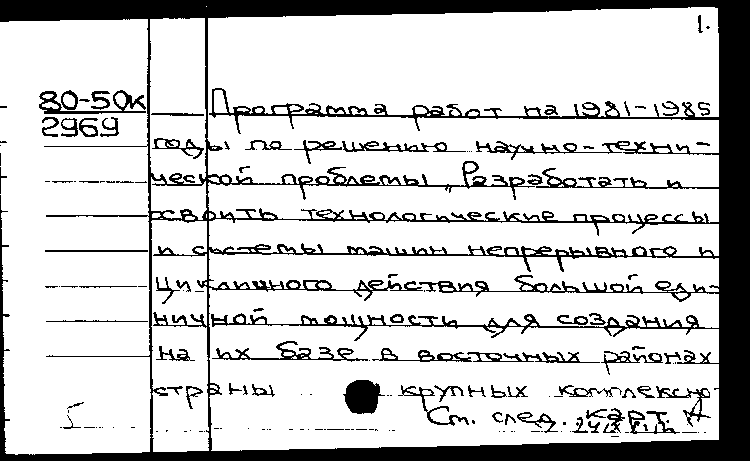 1.
80-50к Программа работ на 1981-1985
2969
годы по решению научно-техни-
ческой проблемы „Разработать и
освоить технологические процессы
и системы машин непрерывного и
цикличного действия большой еди-
ничной мощности для создания
на их базе в восточных районах
страны крупных комплексно-
5 См. след. карт.